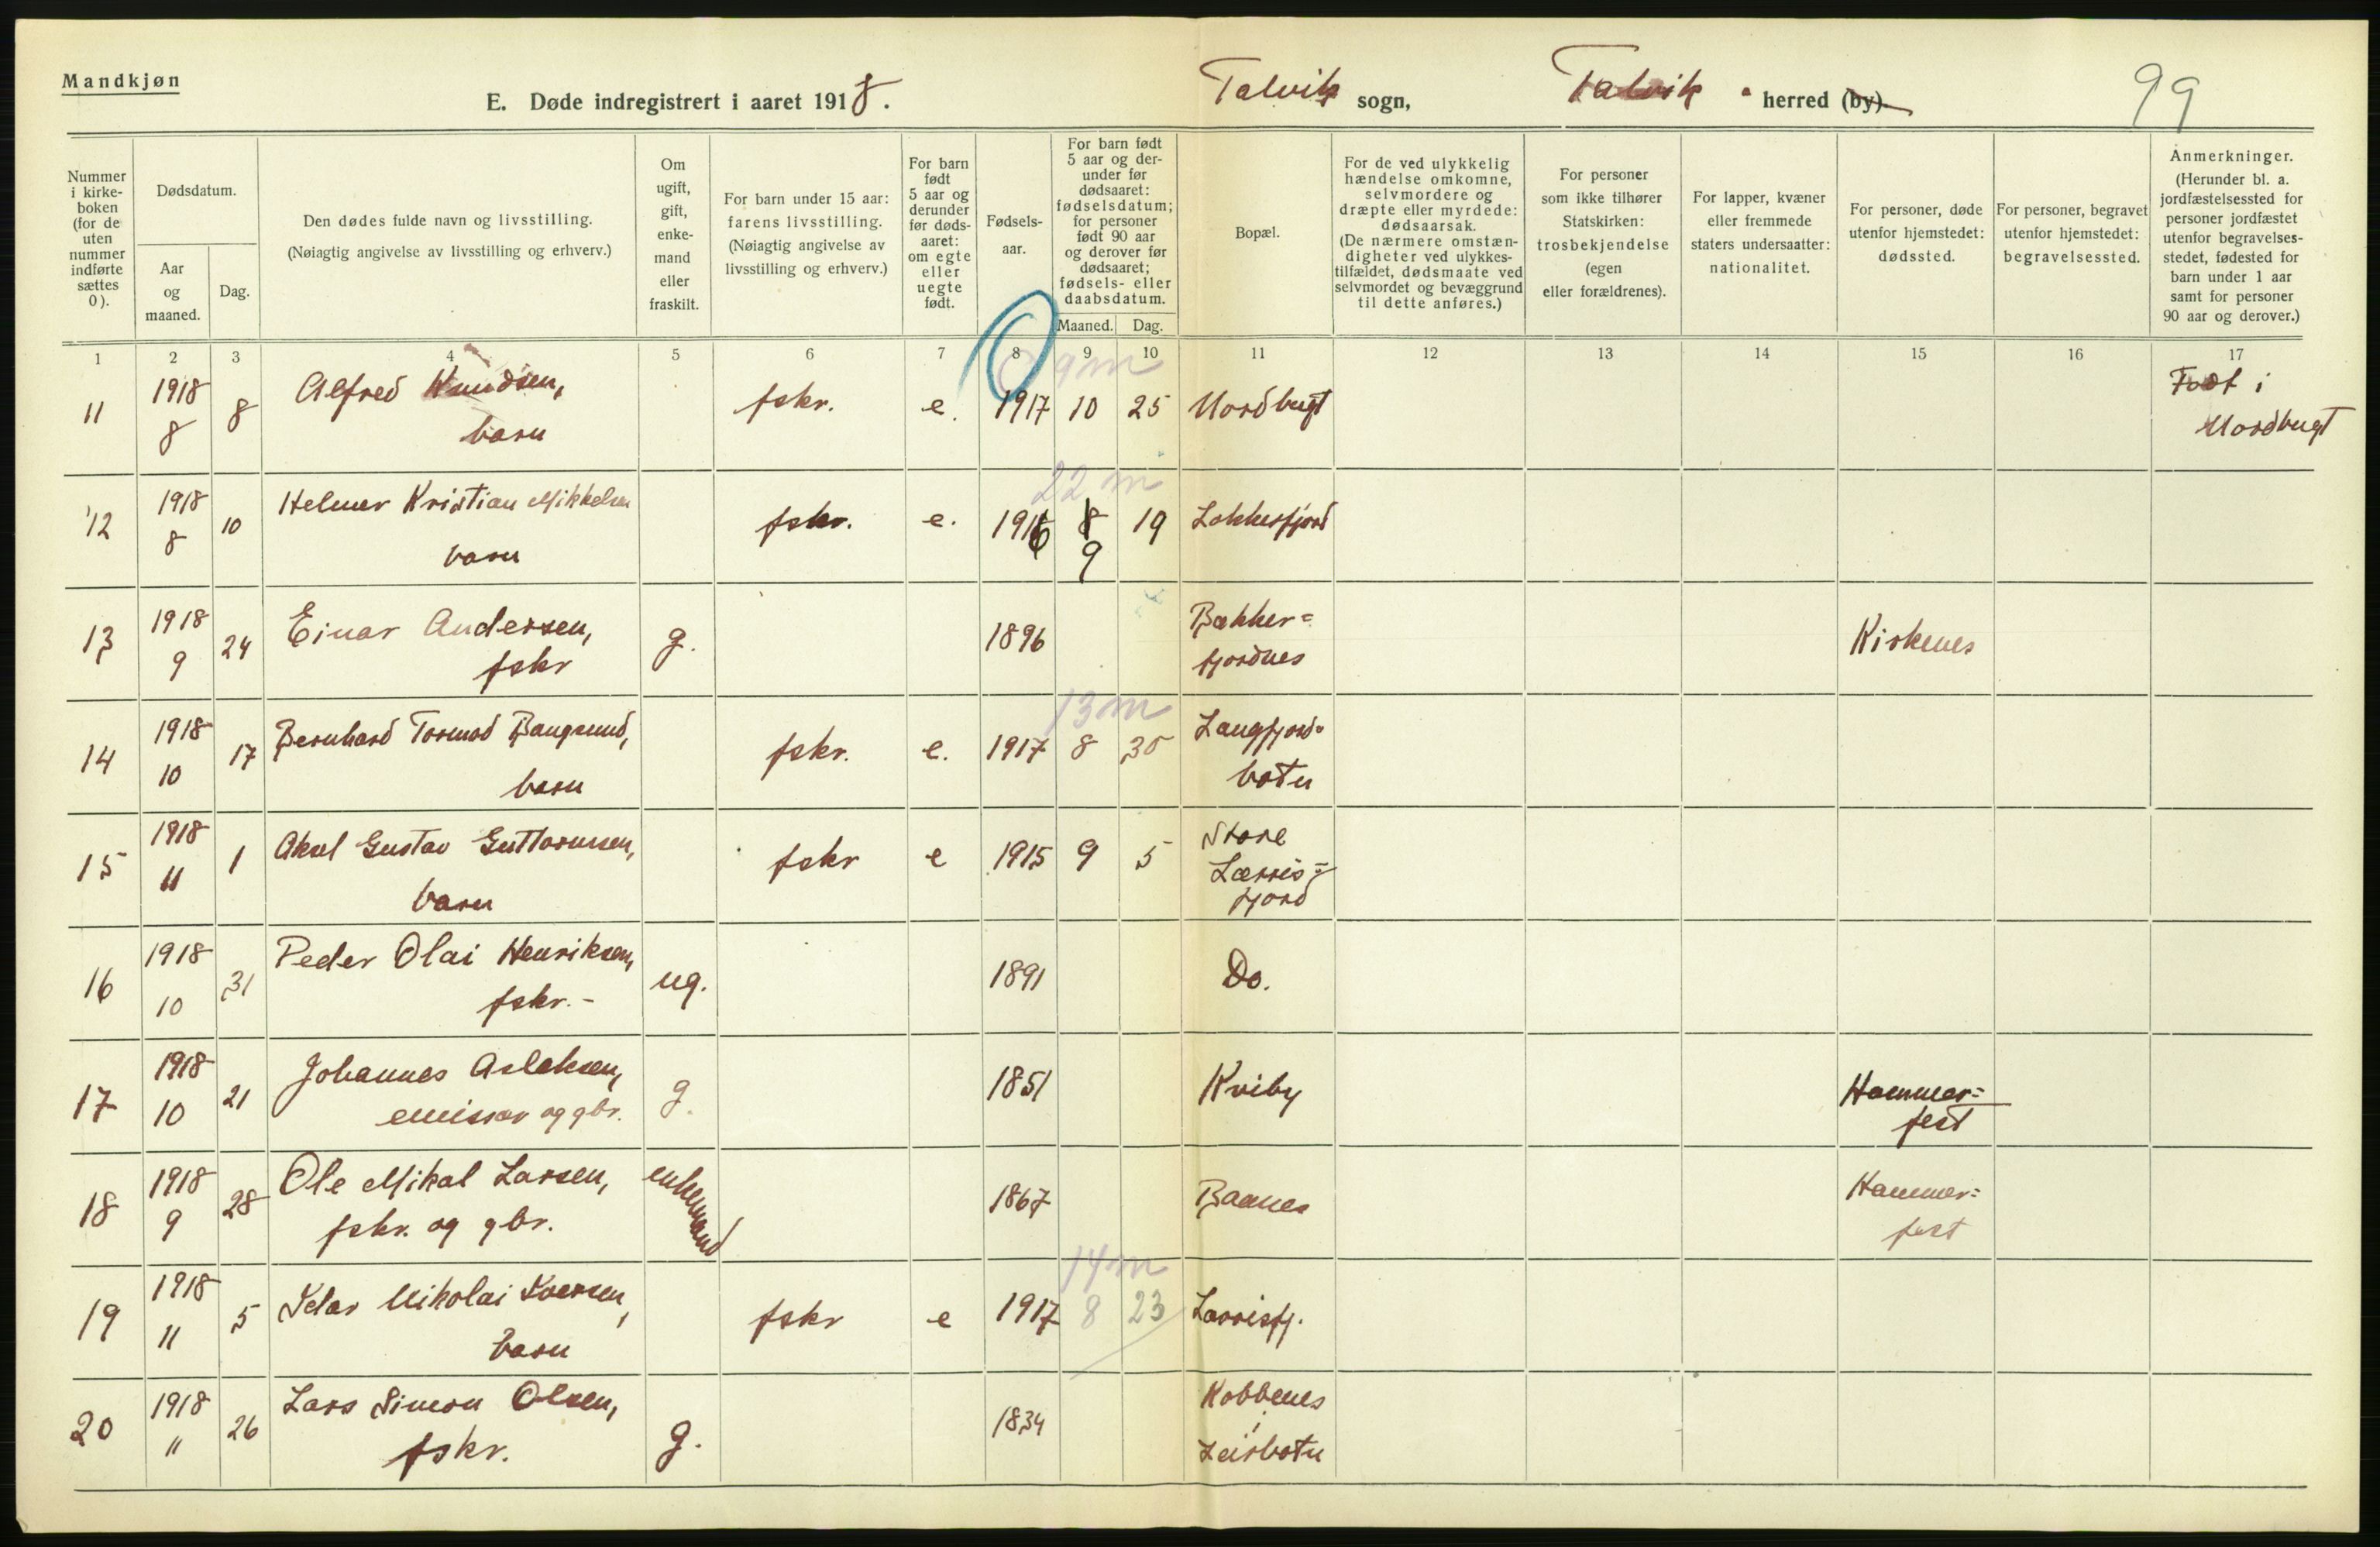 Mandkjøn
E. Døde indregistrert i aaret 1918.
Talvik sogn, Talvik herred (by)
99
Nummer i kirke- boken (for de uten nummer indførte sættes 0).
Dødsdatum.
Aar og maaned.
Dag.
Den dødes fulde navn og livsstilling.
(Nøiagtig angivelse av livsstilling og erhverv.)
Om ugift, gift, enke- mand eller fraskilt.
For barn under 15 aar: farens livsstilling. (Nøiagtig angivelse av livsstilling og erhverv.)
For barn født 5 aar og derunder før døds- aaret: om egte eller uegte født.
Fødsels- aar.
For barn født 5 aar og der- under før dødsaaret: fødselsdatum; for personer født 90 aar og derover før dødsaaret; fødsels- eller daabsdatum.
Maaned. Dag.
Bopæl.
For de ved ulykkelig hændelse omkomne, selvmordere og dræpte eller myrdede: dødsaarsak. (De nærmere omstæn- digheter ved ulykkes- tilfældet, dødsmaate ved selvmordet og bevæggrund til dette anføres.)
For personer som ikke tilhører Statskirken: trosbekjendelse (egen eller forældrenes).
For lapper, kvæner eller fremmede staters undersaatter: nationalitet.
For personer, døde utenfor hjemstedet: dødssted.
For personer, begravet utenfor hjemstedet: begravelsessted.
Anmerkninger. (Herunder bl. a. jordfæstelsessted for personer jordfæstet utenfor begravelses- stedet, fødested for barn under 1 aar samt for personer 90 aar og derover.)
1 2 3 4 5 6 7 8 9 10 11 12 13 14 15 16 17
0 9 m
11 1918 8 8 Alfred Knudsen, barn fskr. e. 1917 10 25 Nordbugt Født i Nordbugt
22 m
12 1918 8 10 Helmer Kristian Mikkelsen barn fskr. e. 1916 8 9 19 Lokkerfjord
13 1918 9 24 Einar Andersen, fskr g. 1896 Bækker= fjordnes Kirkenes
13 m
14 1918 10 17 Bernhard Tormod Bangsund, barn fskr. e. 1917 8 30 Langfjord= botn
15 1918 11 1 Aksel Gustav Guttormsen, barn fskr e 1915 9 5 Store Lærris= fjord
16 1918 10 31 Peder Olai Henriksen, fskr. - ug. 1891 Do.
17 1918 10 21 Johannes Aslaksen, emissær og gbr. g. 1851 Kviby Hammer= fest
18 1918 9 28 Ole Mikal Larsen, fskr. og gbr. enkemand 1867 Baanes Hammer= fest
14 m
19 1918 11 5 Nikolai Iversen, barn fskr e 1917 8 23 Larrisfj.
20 1918 11 26 Lars Simon Olsen, fskr. g. 1834 Kobbenes i Leirbotn